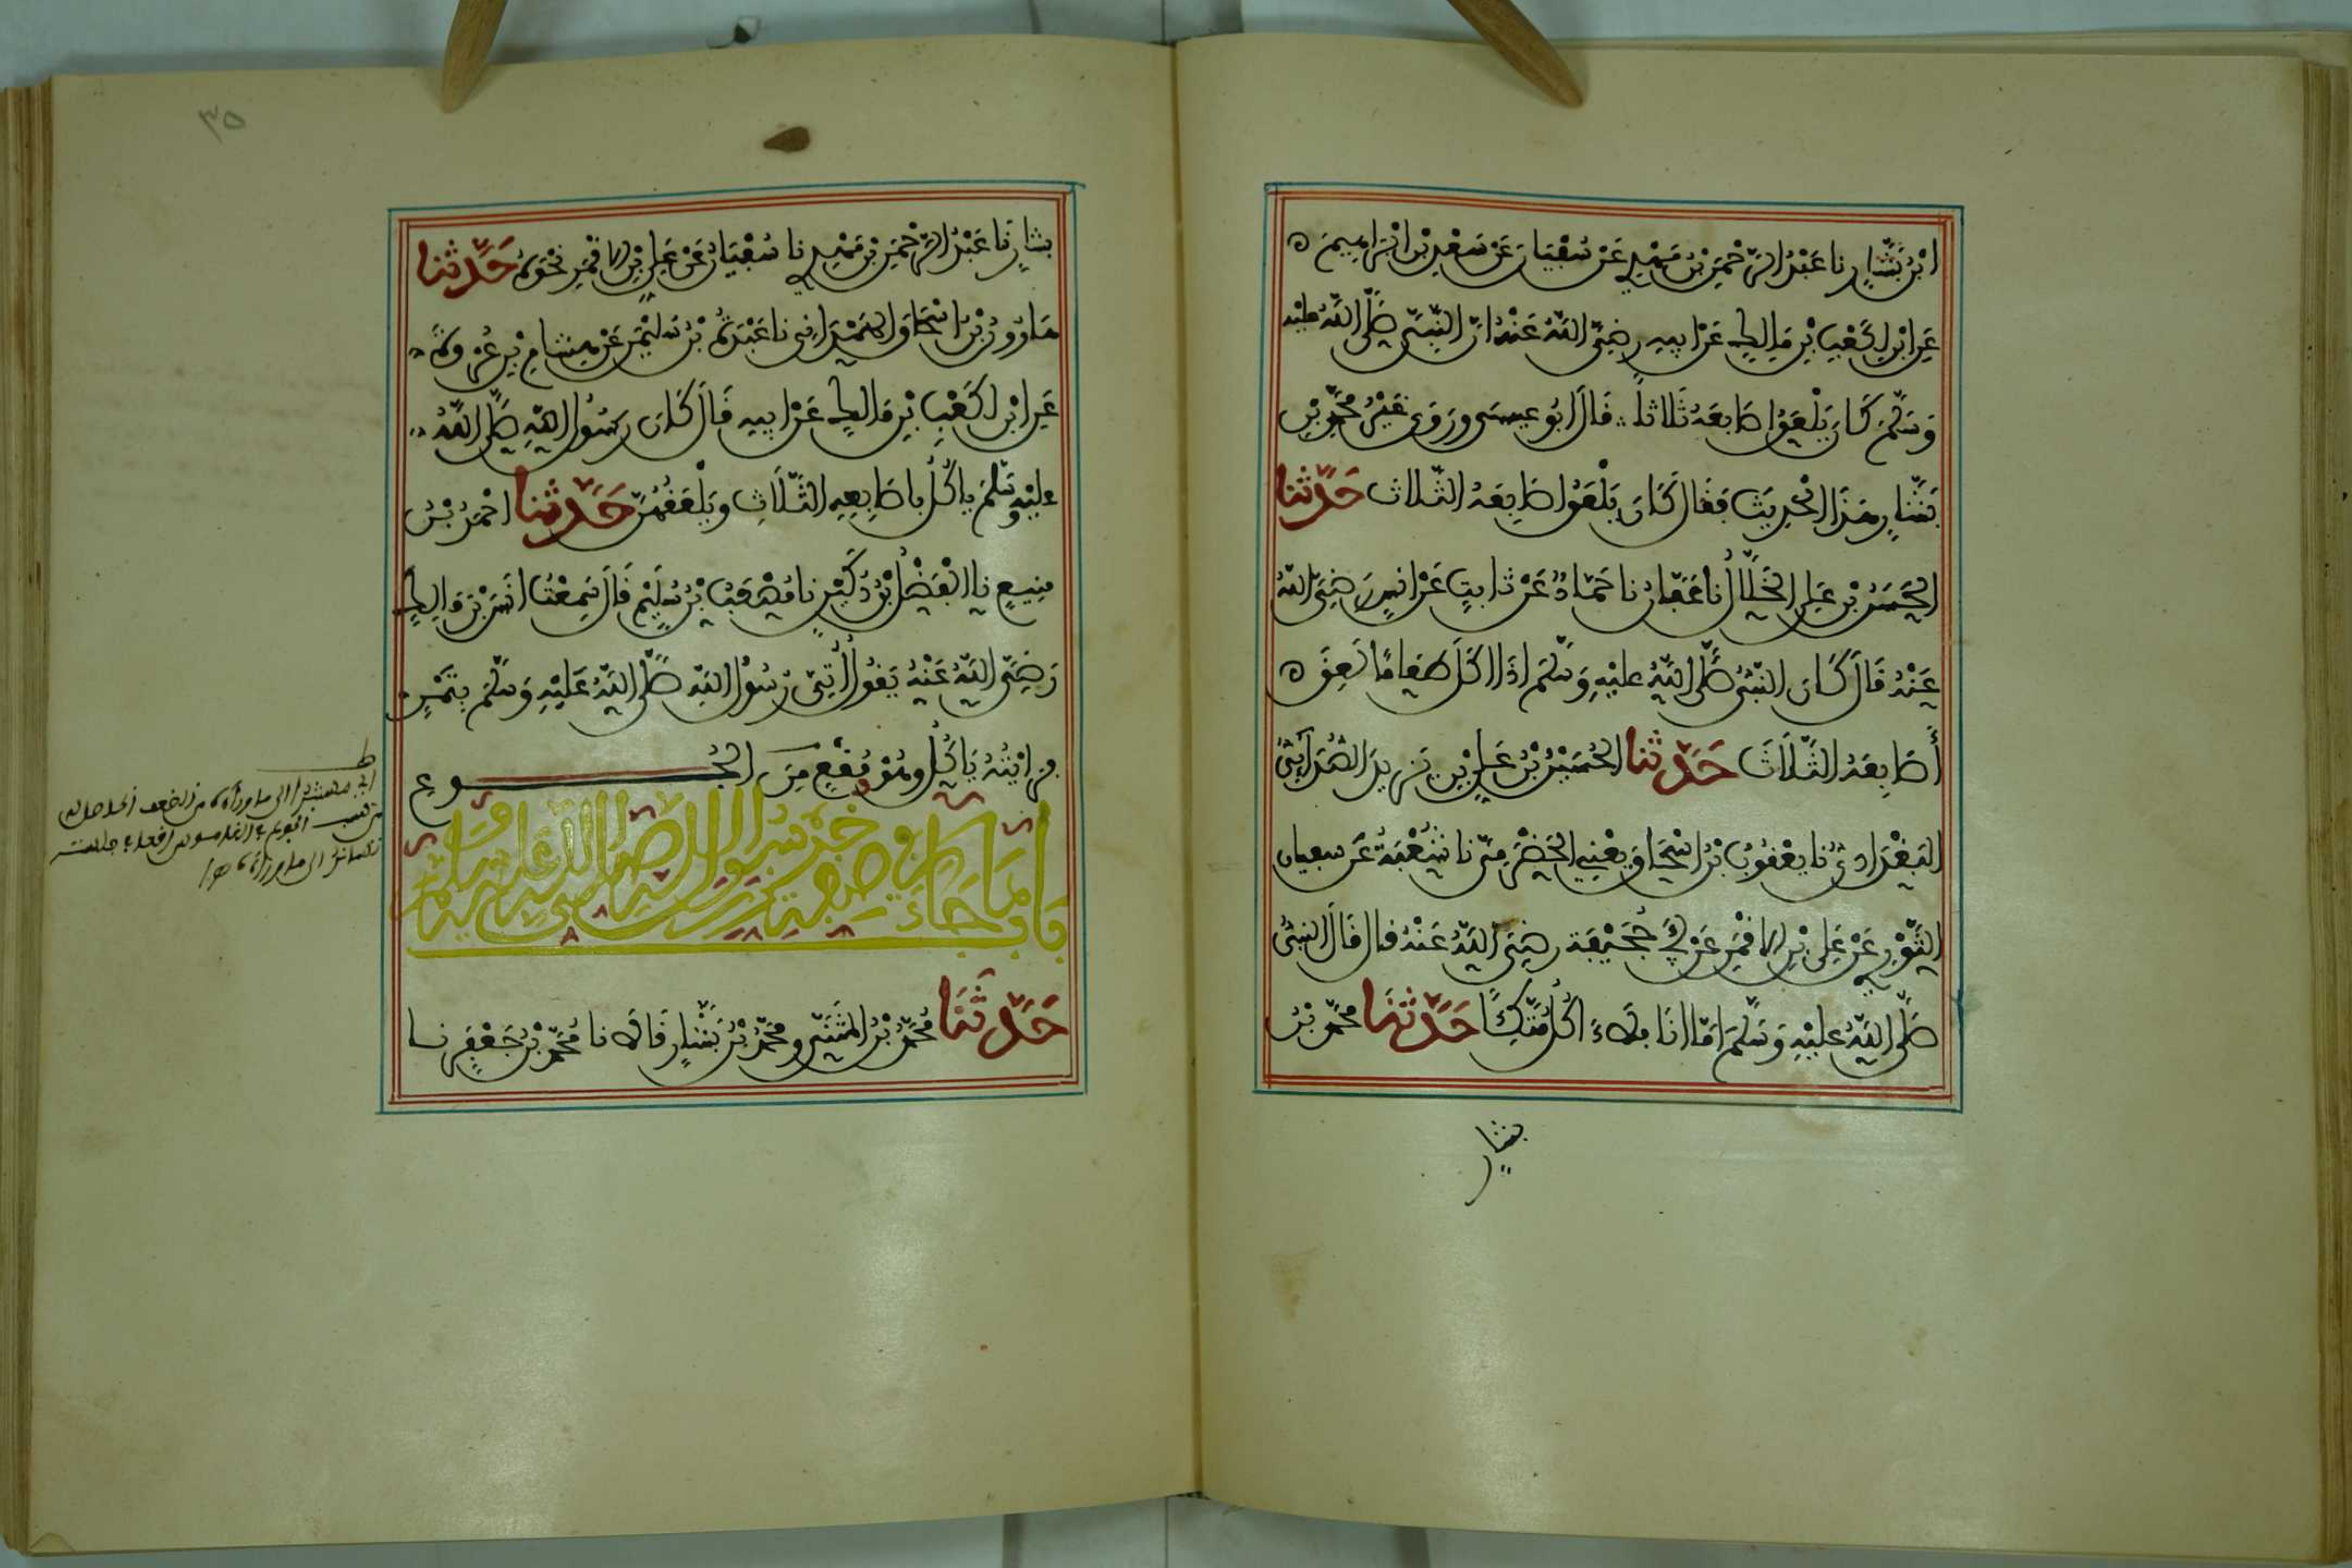 ابْنُ بَشَّارٍ نا عَبْدُ الرَّحْمَنِ بْنُ مَهْدِيٍّ عَنْ سُفْيَانَ عَنْ سَعْدِ بْنِ ابْرَاهِيمَ ه
عَنِ ابْنِ لِكَعْبِ بْنِ مَالِكٍ عَنْ ابِيهِ رَضِيَ اللَّهُ عَنْهُ انَّ النَّبِيَّ صَلَّى اللَّهُ عليْهِ
وَسَلَّمَ كَانَ يَلْعَقُ اصَابِعَهُ ثَلَاثاً ۞ قَالَ ابُو عِيسَى وَرَوَى غَيْرُ مُحَمَّدِ بْنِ
بَشَّارٍ هَذَا الْحَدِيثَ فَقَالَ كَانَ يَلْعَقُ اصَابِعَهُ الثَّلَاثَ حَدَّثَنا
الْحَسَنُ بْنُ عَلِيٍّ الْخَلَّالُ نا عَفَّانُ نا حَمَّادٌ عَنْ ثابِتٍ عَنْ انَسٍ رَضِيَ اللَّهُ
عَنْهُ قَالَ كَانَ النَّبِيُّ صَلَّى اللَّهُ عَلَيْهِ وَسَلَّمَ اذَا اكَلَ طَعَامًا لَعِقَ ه
أَصَابِعَهُ الثَّلَاثَ حَدَّثَنا الْحُسَيْنُ بْنُ عَلِيِّ بْنِ يَزِيدَ الصُّدَائِيُّ
الْبَغْدَادِيُّ نا يَعْقُوبُ بْنُ اسْحَاقَ يَعْنِي الْحَضْرَمِيَّ نا شُعْبَةُ عَنْ سفيان
الثَّوْرِيِّ عَنْ عَلِيِّ بْنِ الاقْمَرِ عَنْ أَبِي جُحَيْفَةَ رَضِيَ اللَّهُ عَنْهُ قال قَالَ النَّبِيُّ
صَلَّى اللَّهُ عَلَيْهِ وَسَلَّمَ امَّا انَا فَلَاءَ اكُلُ مُتَّكِئًا حَدَّثَنَا مُحَمَّدُ بْنُ
بشارٍ
٣٥
بشارٍ نَا عَبْدُ الرَّحْمَنِ بْنُ مَهْدِيٍّ نا سُفْيَانُ عَنْ عَلِيِّ بْنِ الاقْمَرِ نَحْوَهُ حَدَّثَنا
هَارُونُ بْنُ اسْحَاقَ الْهَمْدَانِيُّ نا عَبْدَةُ بْنُ سُلَيْمَنَ عَنْ هِشَامِ بْنِ عُرْوَةَ
عَنِ ابْنٍ لِكَعْبِ بْنِ مَالِكٍ عَنْ ابِيهِ قَالَ كَانَ رَسُولُ اللَّهِ صَلَّى اللَّهُ
عليْهِ وَسَلَّمَ يَاكُلُ بِاصَابِعِهِ الثَّلَاثِ وَيَلْعَقُهُنَّ حَدَّثَنا احْمَدُ بْنُ
مَنِيعٍ نا الْفَضْلُ بْنُ دُكَيْنٍ نا مُصْعَبُ بْنُ سُلَيْمٍ قَالَ سَمِعْتُ انَسَ بْنَ مَالِكٍ
رَضِيَ اللَّهُ عَنْهُ يَقُولُ أُتِيَ رَسُولُ اللَّهِ صَلَّى اللَّهُ عَلَيْهِ وَسَلَّمَ بِتَمْرٍ
فرايْتُهُ يَاكُلُ وهُوَ مُقْعٍ مِنَ الْجُوعِ
بَابُ مَا جَاءَ فِي صِفَةِ خُبْزِ رَسُولِ اللَّهِ صَلَّى اللَّهُ عَلَيْهِ وَسَلَّمَ
حَدَّثَنَا مُحَمَّدُ بْنُ الْمُثَنَّى ومُحَمَّدُ بْنُ بَشَّارٍ قَالَا نا مُحَمَّدُ بْنُ جَعْفَرٍ نا